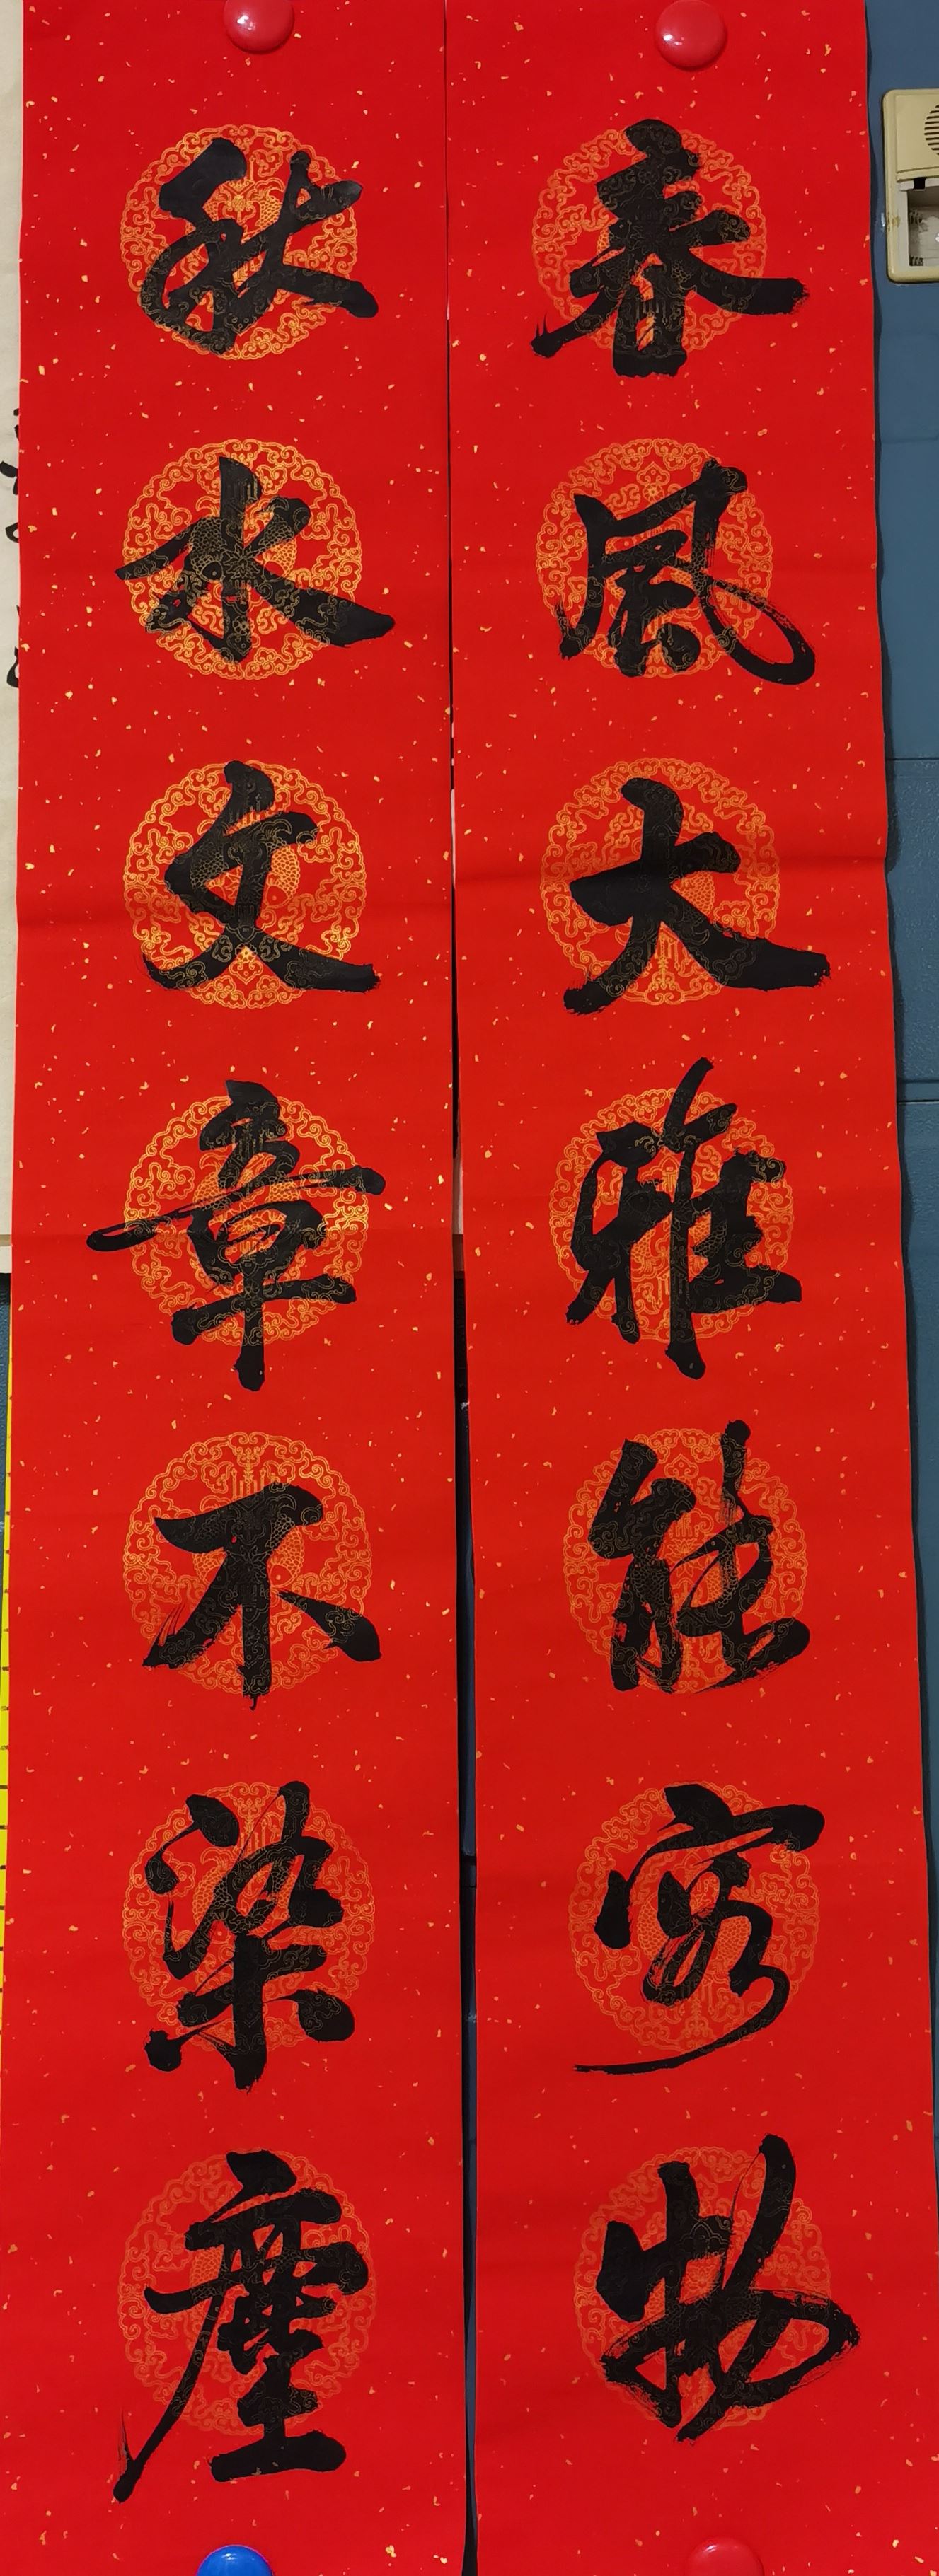 春風大雅能容物
秋水文章不染塵